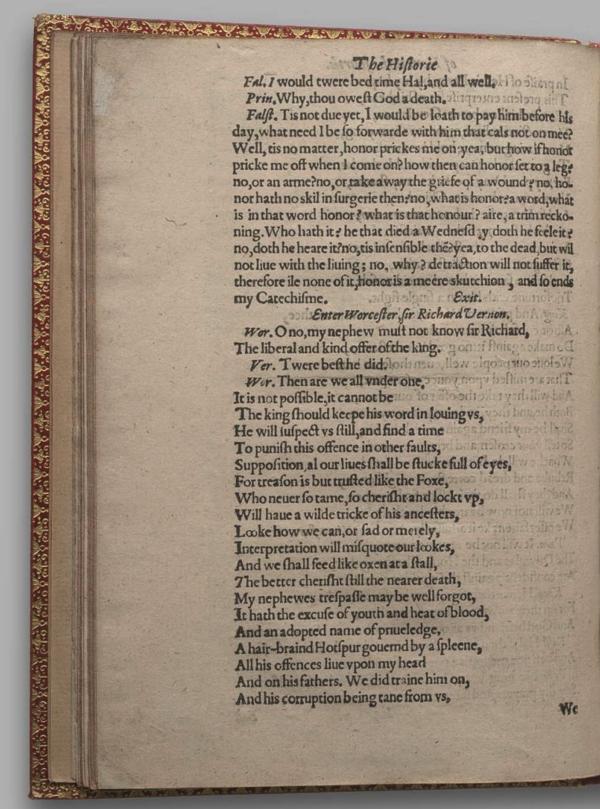 The Historie
Fal. I would twere bed time Hal, and all well.
Prin. Why, thou owest God a death.
Falst. Tis not due yet, I would be loath to pay him before his
day, what need I be so forwarde with him that cals not on mee?
Well, tis no matter, honor prickes me on: yea, but how if honor
pricke me off when I come on? how then can honor set to a leg?
no, or an arme? no, or take away the griefe of a wound? no, ho-
nor hath no skil in surgerie then? no, what is honor? a word, what
is in that word honor? what is that honour? aire, a trim recko-
ning. Who hath it? he that died a Wednesd y doth he feele it?
no, doth he heare it? no, tis insensible the? yea, to the dead, but wil
not liue with the liuing; no, why? detraction will not suffer it,
therefore ile none of it, honor is a meere skutchion, and so ends
my Catechisme. Exit.
Enter Worcester, sir Richard Vernon.
Wor. O no, my nephew must not know sir Richard,
The liberal and kind offer of the king.
Ver. Twere best he did.
Wor. Then are we all vnder one,
It is not possible, it cannot be
The king should keepe his word in louing vs,
He will suspect vs still, and find a time
To punish this offence in other faults,
Supposition, al our liues shall be stucke full of eyes,
For treason is but trusted like the Foxe,
Who neuer so tame, so cherisht and lockt vp,
Will haue a wilde tricke of his ancesters,
Looke how we can, or sad or merely,
Interpretation will misquote our lookes,
And we shall feed like oxen at a stall,
The better cherisht still the nearer death,
My nephewes trespasse may be well forgot,
It hath the excuse of youth and heat of blood,
And an adopted name of priueledge,
A hair-braind Hotspur gouernd by a spleene,
All his offences liue vpon my head
And on his fathers. We did traine him on,
And his corruption being tane from vs,
We